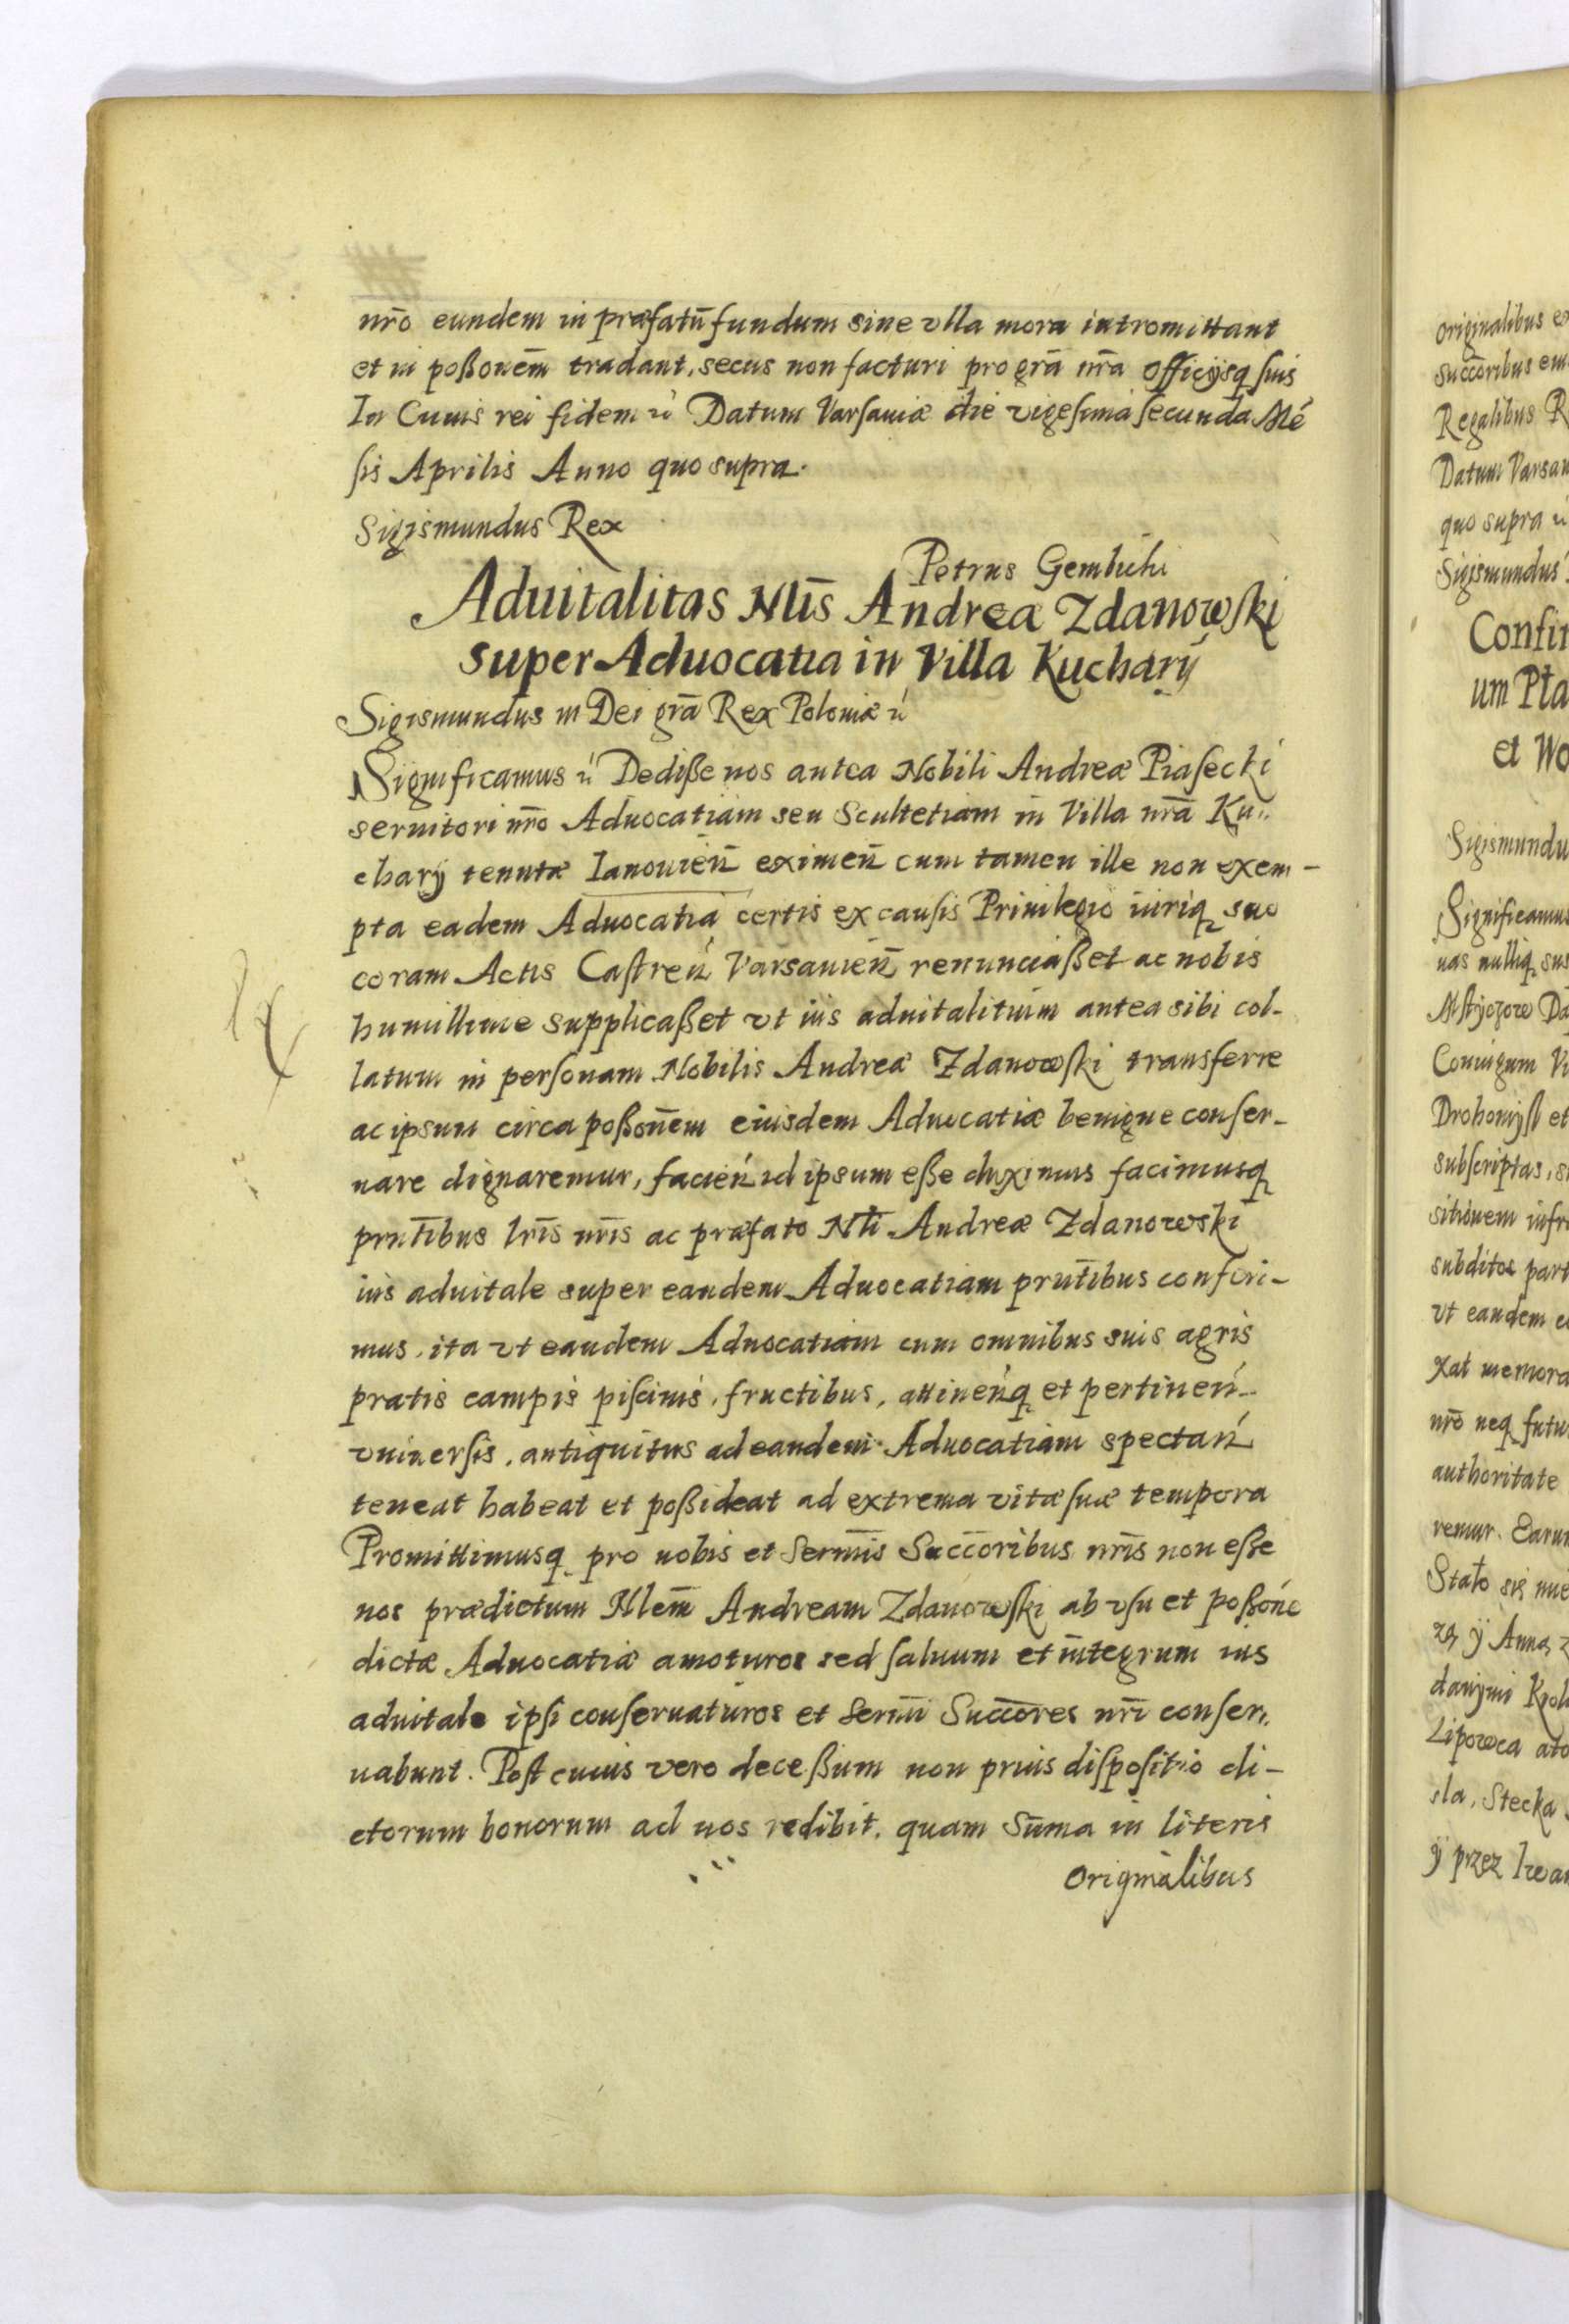 nrō eundem in præfatū fundum sine vlla mora intromittant
et in poßonēm tradant, secus non facturi pro grā nrā officijsq ſuis
In Cuius rei fidem ń Datum Varſauiæ die vigeſima ſecunda Mē
ſis Aprilis Anno quo supra.
Sigismundus Rex
Petrus Gembicki
Aduitalitas Nlīs Andreæ Zdanowſki
super Aduocatia in Villa Kucharÿ
Sigismundus iii Dei grā Rex Poloniæ ń
Significamus ń Dediße nos antea Nobili Andreæ Piaſecki
seruitori nrō Aduocatiam seu Scultetiam in Villa nrā Ku..
charÿ tenutæ Ianouień eximeń cum tamen ille non exem-
pta eadem Aduocatia certis ex cauſis Priuilegio iuriq suo
coram Actis Caſtreń Varsauień renunciaßet ac nobis
humillime supplicaßet vt ius aduitalitium antea sibi col-
latum in perſonam Nobilis Andreæ Zdanowſki transferre
ac ipsum circa poßonēm eiusdem Aduocatiæ benigne conſer-
uare dignaremur, facień id ipsum eße duximus facimusq
prntībus lrīs nrīs ac præfato Nlī Andreæ Zdanowski
ius aduitale super eandem Aduocatiam prntībus conferi-
mus, ita vt eandem Aduocatiam cum omnibus suis agris
pratis campis piſcinis, fructibus, attineńq et pertineń..
vniuerſis, antiquitus ad eandem Aduocatiam spectań
teneat habeat et poßideat ad extrema vitæ ſuæ tempora
Promittimusq pro nobis et Sermīs Succōribus nrīs non eße
nos prædictum Nlem̄ Andream Zdanowſki ab vſu et poßōne
dictæ Aduocatiæ amoturos sed ſaluum et integrum ius
aduitale ipſi conſeruaturos et Sermī Succōres nrī conſer..
uabunt. Poſt cuius vero deceßum non prius diſpoſitio di-
ctorum bonorum ad nos redibit, quam Sūma in literis
originalibus
originalibus ex
Succōribus em
Regalibus R
Datum Varsau
quo supra ń
Sigismundus
Confir
um Pta
et Wo
Sigismundu
Significamus
uas nulliq sus
Mſtÿczow Da
Coniugum Vi
Drohomÿſl et
subſcriptas, si
sitionem infr
subditos part
vt eandem e
xat memora
nrō neq futu
authoritate
remur. Earun
Stało się mie
zą ÿ Anną z
danÿmi Krol
Lipowca ato
sla, Stecka
ÿ przez Iwan